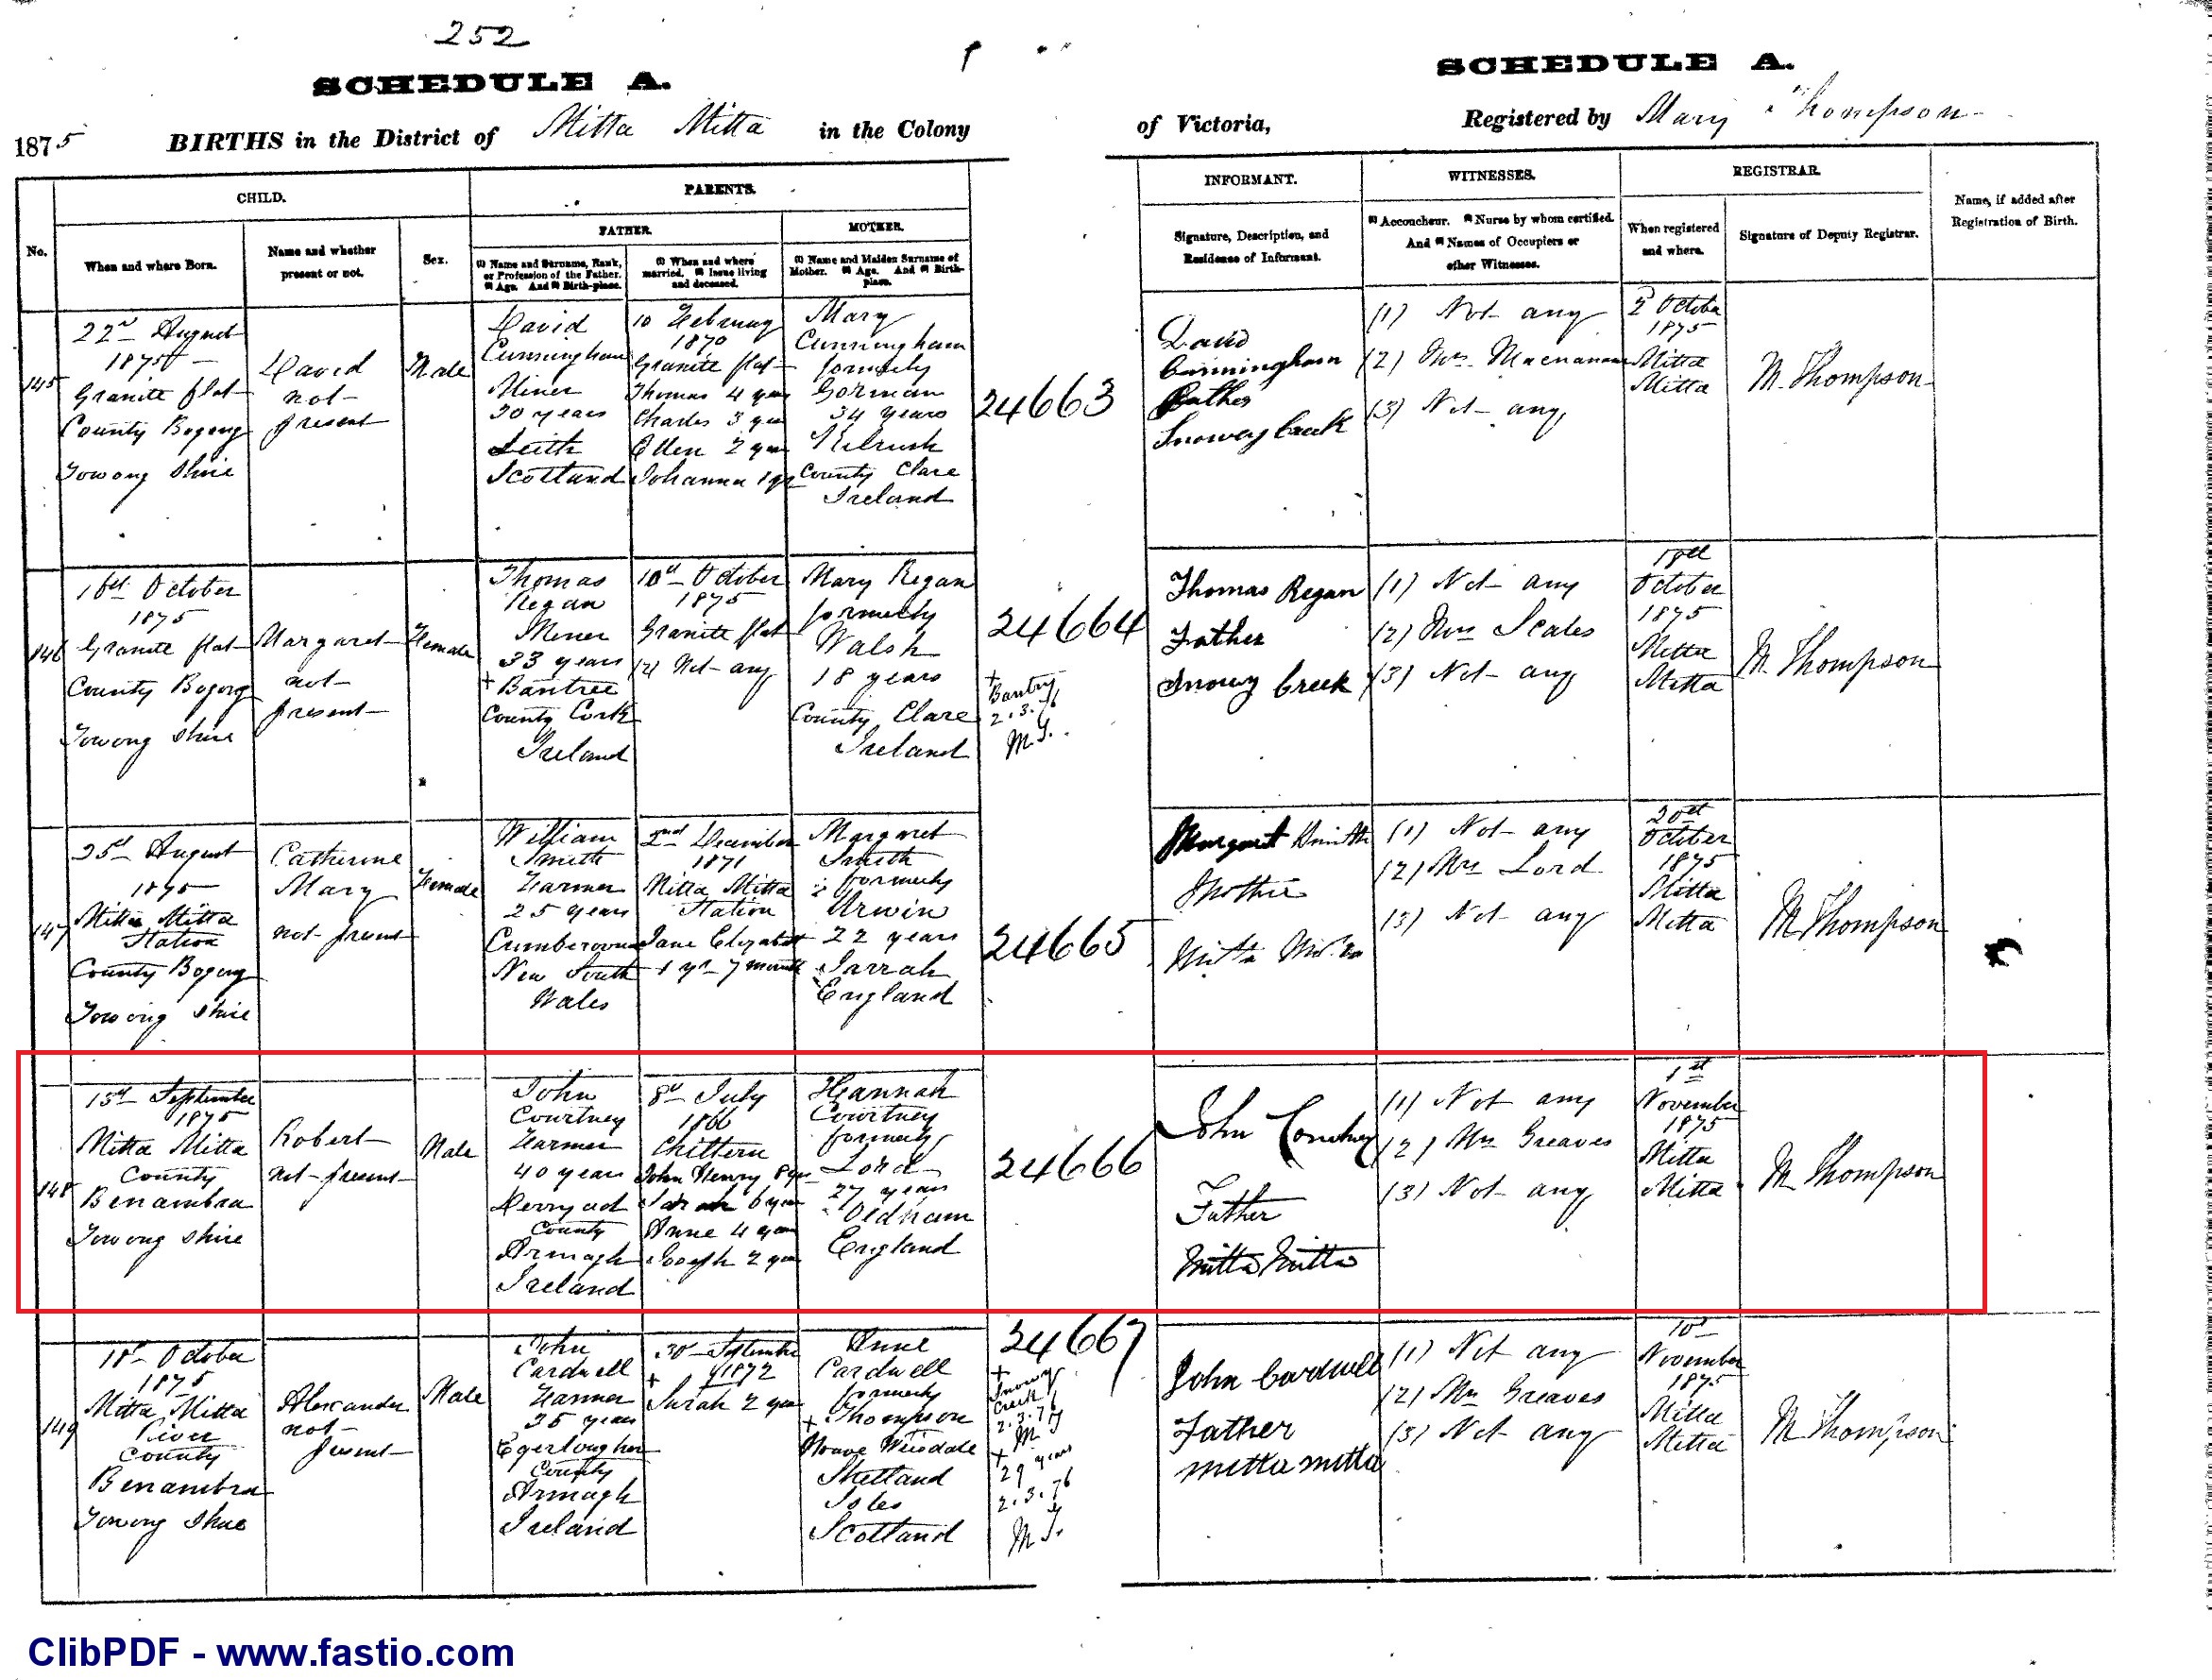 252
SCHEDULE A.
SCHEDULE A.
1875 BIRTHS in the District of Mitta Mitta in the Colony
of Victoria, Registered by Mary Thompson
No.
CHILD.
When and where Born.
Name and whether
present or not.
Sex.
PARENTS.
FATHER.
(1) Name and Surname, Rank,
or Profession of the Father.
(2) Age. And (3) Birth-place.
(1) When and where
married. (2) Issue living
and deceased.
MOTHER.
(1) Name and Maiden Surname of
Mother. (2) Age. And (3) Birth-
place.
INFORMANT.
Signature, Description, and
Residence of Informant.
WITNESSES.
(1) Accoucheur. (2) Nurse by whom certified.
And (3) Names of Occupiers or
other Witnesses.
REGISTRAR.
When registered
and where.
Signature of Deputy Registrar.
Name, if added after
Registration of Birth.
145
22nd August
1875
Granite flat
County Bogong
Towong Shire
David
not
present
Male
David
Cunningham
Miner
30 years
Leith
Scotland
10 February
1870
Granite flat
Thomas 4 years
Charles 3 years
Ellen 2 years
Johanna 1 yr
Mary
Cunningham
formerly
Gorman
34 years
Kilrush
County Clare
Ireland
24663
David
Cunningham
Father
Snowey Creek
(1) Not any
(2) Mrs
(3) Not any
2 October
1875
Mitta
Mitta
M. Thompson
146
October
1875
Granite flat
County Bogong
Towong Shire
Margaret
not
present
Female
Thomas
Regan
Miner
33 years
+ Bantree
County Cork
Ireland
10th October
1875
Granite flat
(2) Not any
Mary Regan
formerly
Walsh
18 years
County Clare
Ireland
24664
+
Bantry
2.3.76
M.T.
Thomas Regan
Father
Snowy Creek
(1) Not any
(2) Mrs Scales
(3) Not any
October
1875
Mitta
Mitta
M Thompson
147
25th August
1875
Mitta Mitta
Station
County Bogong
Towong Shire
Catherine
Mary
not present
Female
William
Smith
Farmer
25 years
New South
Wales
2nd December
1871
Mitta Mitta
Station
Jane Elizabeth
1 yr 7 months
Margaret
Smith
formerly
Urwin
22 years
Jarrah
England
24665
Margaret Smith
Mother
Mitta Mitta
(1) Not any
(2) Mrs Lord
(3) Not any
20th
October
1875
Mitta
Mitta
M Thompson
148
September
1875
Mitta Mitta
County
Benambra
Towong Shire
Robert
not present
Male
John
Courtney
Farmer
40 years
Derryad
County
Armagh
Ireland
8th July
1866
Chiltern
John Henry 8 yrs
Sarah 6 years
Anne 4 years
Joseph 2 years
Hannah
Courtney
formerly
Lord
27 years
Oldham
England
24666
John Courtney
Father
Mitta Mitta
(1) Not any
(2) Mrs Greaves
(3) Not any
1st
November
1875
Mitta
Mitta
M Thompson
149
October
1875
Mitta Mitta
River
County
Benambra
Towong Shire
Alexander
not
present
Male
John
Cardwell
Farmer
35 years
County
Armagh
Ireland
30 September
+ 1872
Sarah 2 years
Anne
Cardwell
formerly
+ Thompson
Shetland
Isles
Scotland
24667
+
Snowy
Creek
2.3.76
M T
+
29 years
2.3.76
M T.
John Cardwell
Father
mitta mitta
(1) Not any
(2) Mrs Greaves
(3) Not any
10th
November
1875
Mitta
Mitta
M Thompson
ClibPDF - www.fastio.com